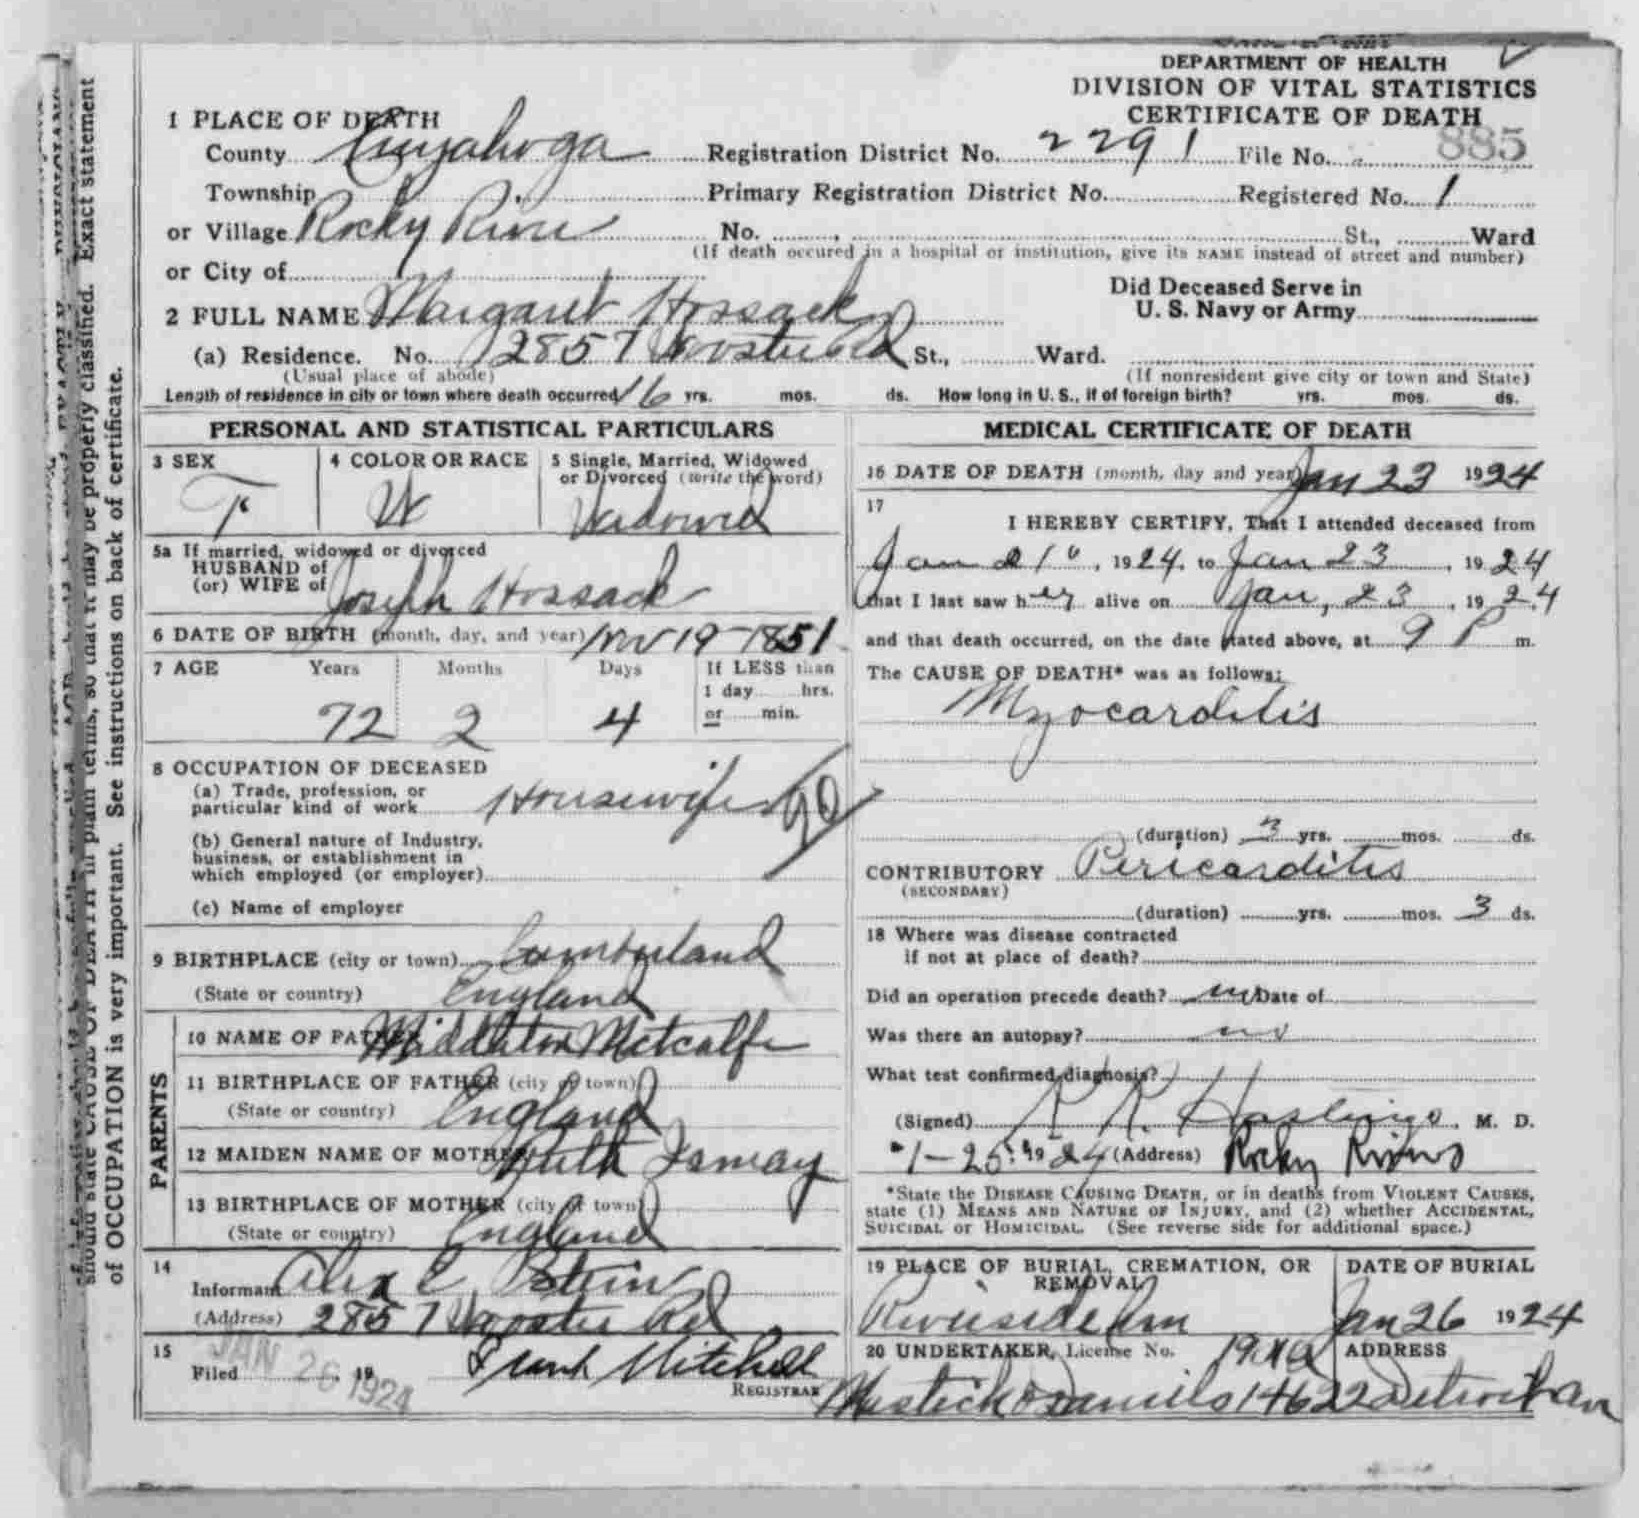 DEPARTMENT OF HEALTH
DIVISION OF VITAL STATISTICS
CERTIFICATE OF DEATH
1 PLACE OF DEATH
County Cuyahoga Registration District No. 2291 File No. 885
Township Primary Registration District No. Registered No. 1
or Village Rocky River No. St., Ward
(If death occured in a hospital or institution, give its NAME instead of street and number)
or City of
Did Deceased Serve in
U. S. Navy or Army
2 FULL NAME Margaret Hossack
(a) Residence. No. 2857 Wooster Rd St., Ward.
(Usual place of abode) (If nonresident give city or town and State)
Length of residence in city or town where death occurred 16 yrs. mos. ds. How long in U. S., if of foreign birth? yrs. mos. ds.
PERSONAL AND STATISTICAL PARTICULARS
3 SEX 4 COLOR OR RACE 5 Single, Married, Widowed
or Divorced (write the word)
F W Widowed
5a If married, widowed or divorced
HUSBAND of
(or) WIFE of Joseph Hossack
6 DATE OF BIRTH (month, day, and year) Nov 19-1851
7 AGE Years Months Days If LESS than
1 day hrs.
or min.
72 2 4
8 OCCUPATION OF DECEASED
(a) Trade, profession, or
particular kind of work Housewife
(b) General nature of Industry,
business, or establishment in
which employed (or employer)
(c) Name of employer
9 BIRTHPLACE (city or town) Cumberland
(State or country) England
PARENTS
10 NAME OF FATHER Middleton Metcalfe
11 BIRTHPLACE OF FATHER (city or town)
(State or country) England
12 MAIDEN NAME OF MOTHER Ruth Ismay
13 BIRTHPLACE OF MOTHER (city or town)
(State or country) England
14
Informant Alex E Stein
(Address) 2857 Wooster Rd
15
Filed JAN 26 1924 19 Frank Mitchell
REGISTRAR
MEDICAL CERTIFICATE OF DEATH
16 DATE OF DEATH (month, day and year) Jan 23 1924
17
I HEREBY CERTIFY, That I attended deceased from
Jan 21, 1924, to Jan 23, 1924
that I last saw her alive on Jan, 23, 1924
and that death occurred, on the date stated above, at 9 P m.
The CAUSE OF DEATH* was as follows:
Myocarditis
(duration) 3 yrs. mos. ds.
CONTRIBUTORY Pericarditis
(SECONDARY)
(duration) yrs. mos. 3 ds.
18 Where was disease contracted
if not at place of death?
Did an operation precede death? no Date of
Was there an autopsy? no
What test confirmed diagnosis?
(Signed) R. R. Hastings, M. D.
1-25, 1924 (Address) Rocky River
*State the DISEASE CAUSING DEATH, or in deaths from VIOLENT CAUSES,
state (1) MEANS AND NATURE OF INJURY, and (2) whether ACCIDENTAL,
SUICIDAL or HOMICIDAL. (See reverse side for additional space.)
19 PLACE OF BURIAL, CREMATION, OR
REMOVAL
DATE OF BURIAL
Riverside Cem Jan 26 1924
20 UNDERTAKER, License No. ADDRESS
Mastick & Daniels 14622 Detroit Av
should state CAUSE OF DEATH in plain terms, so that it may be properly classified. Exact statement
of OCCUPATION is very important. See instructions on back of certificate.